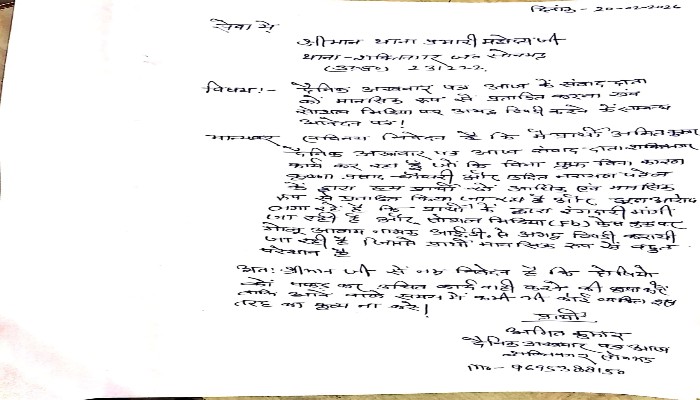 दिनांक:- 20-02-2026
सेवा में
श्रीमान थाना प्रभारी महोदय जी
थाना - शक्तिनगर जन सोनभद्र
(उ०प्र०) 231222
विषय:- दैनिक अखबार पत्र आज के संवाद दाता
को मानसिक रूप से प्रताड़ित करना एवं
सोशल मिडिया पर अभद्र टिप्पणी करने के सम्बन्ध
आवेदन पत्र!
मान्यवर सविनय निवेदन है कि मैं प्रार्थी अमित कुमार
दैनिक अखबार पत्र आज संवाद दाता शक्तिनगर
कार्य कर रहा है जो कि बिना कारण
के द्वारा हम प्रार्थी को आर्थिक एवं मानसिक
रूप से प्रताड़ित किया जा रहा है और आरोप
लगा रहे है कि प्रार्थी के द्वारा रंगदारी मांगी
जा रही है और सोशल मिडिया (Fb) फेस बुक पर
नामक आईडी से अभद्र टिप्पणी करायी
जा रही है जिससे प्रार्थी मानसिक रूप से बहुत
परेशान है
अतः श्रीमान जी से नम्र निवेदन है कि दोषियो
को पकड़ कर उचित कार्यवाही करने की कृपा करें
ताकि आने वाले समय में कभी भी कोई व्यक्ति इस
तरह का कृत्य ना करे!
प्रार्थी
अमित कुमार
दैनिक अखबार पत्र आज
शक्तिनगर सोनभद्र
mo- 9695388150